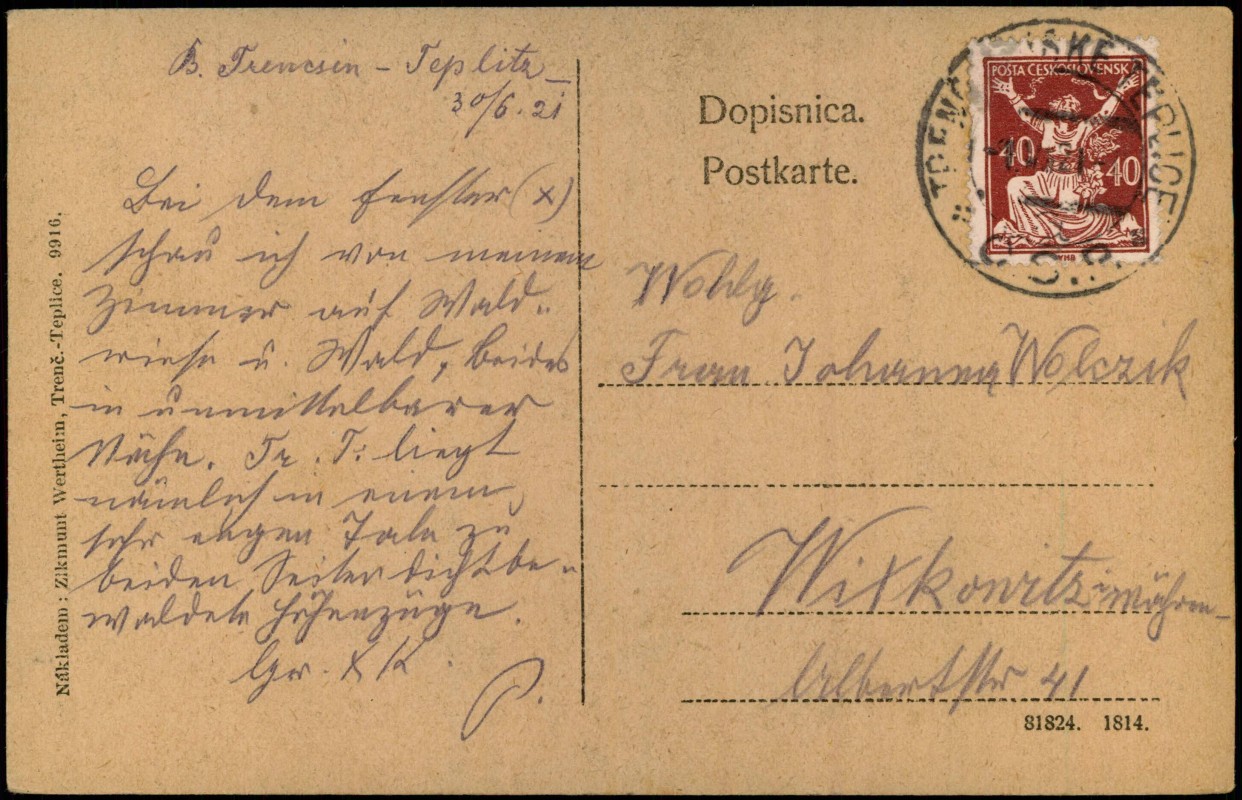 B. Trencsin - Teplitz
30/6. 21
Bei dem Fenster (x)
schau ich von meinem
Zimmer auf Wald-
wiese u. Wald, beides
in unmittelbarer
Nähe. Tr. T. liegt
nämlich in einem
sehr engen Tale zu
beiden Seiten dichtbe-
waldete Höhenzüge.
Gr. & K.
Nákladem: Zikmunt Wertheim, Trenč.-Teplice. 9916.
Dopisnica.
Postkarte.
POSTA ČESKOSLOVENSKÁ
40 40
TRENČIANSKE TEPLICE
Č.S.P.
Wohlg.
Frau Johanna Wolczik
Witkowitz Mähren
Albertstr 41
81824. 1814.